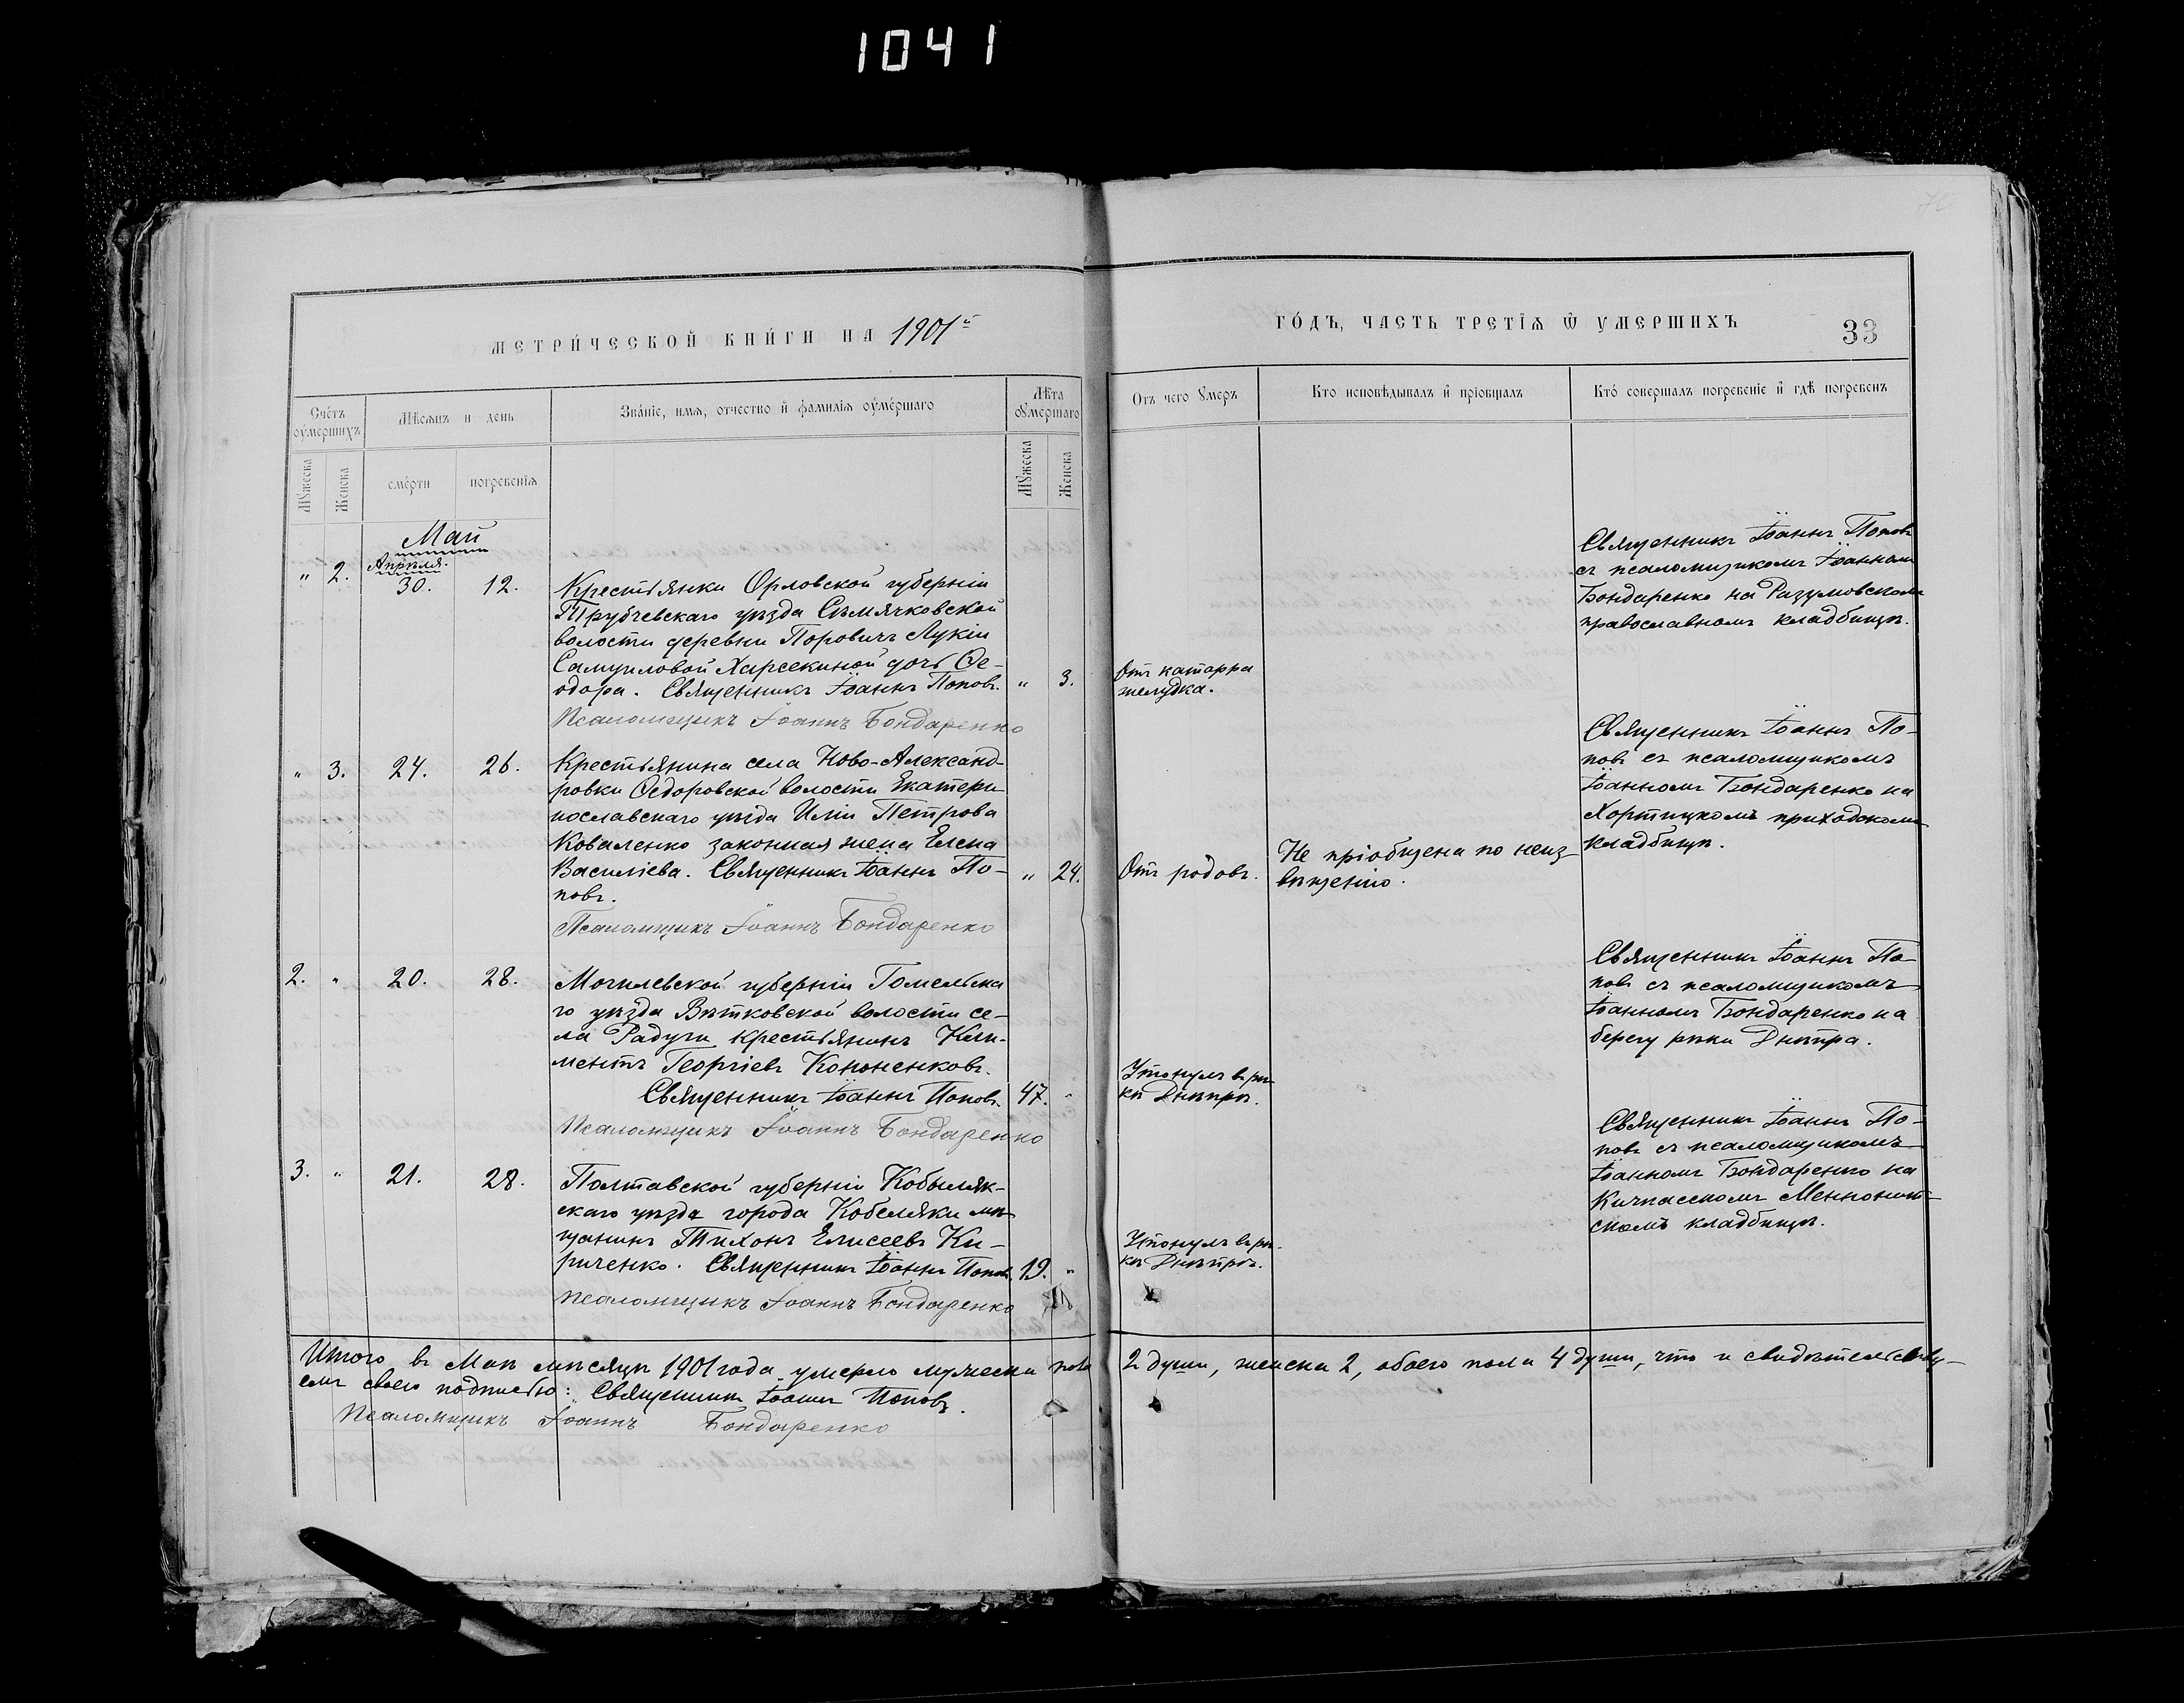 1041
МЕТРИ́ЧЕСКОЙ КНИ́ГИ НА 1901й
ГО́ДЪ, ЧАСТЬ ТРЕТІѦ Ѿ УМЕРШИХЪ
33
Сче́тъ оу҆мершихъ
Мѣсѧцъ и день
Зва́нїе, имѧ, отчество и҆ фамилїѧ оу҆ме́ршаго
Лѣта оу҆мершаго
Отъ чего Ꙋмеръ
Кто исповѣдывалъ и҆ прїобщалъ
Кто́ совершалъ погребенїе и҆ гдѣ погребенъ
Мꙋжеска
Женска
сме́рти
погребенїѧ
Мꙋжеска
Женска
Май
Апрѣля.
" 2. 30. 12.
Крестьянки Орловской губерніи
Трубчевскаго уѣзда Сѣмячковской
волости деревни Поровичъ Лукіи
Самуиловой Харсекиной дочь Ѳе-
одора. Священникъ Іоаннъ Поповъ.
Псаломщикъ Іоаннъ Бондаренко
" 3.
Отъ катарра
желудка.
Священникъ Іоаннъ Поповъ
съ псаломщикомъ Іоанномъ
Бондаренко на Разумовскомъ
православномъ кладбищѣ.
" 3. 24. 26.
Крестьянина села Ново-Александ-
ровки Ѳедоровской волости Екатери
нославскаго уѣзда Иліи Петрова
Коваленко законная жена Елена
Василіева. Священникъ Іоаннъ По-
повъ.
Псаломщикъ Іоаннъ Бондаренко
" 24.
Отъ родовъ.
Не пріобщена по неиз-
вѣщенію.
Священникъ Іоаннъ По-
повъ съ псаломщикомъ
Іоанномъ Бондаренко на
Хортицкомъ приходскомъ
кладбищѣ.
2. " 20. 28.
Могилевской губерніи Гомельска
го уѣзда Вѣтковской волости се-
ла Радуги крестьянинъ Кли-
ментъ Георгіевъ Кононенковъ.
Священникъ Іоаннъ Поповъ.
Псаломщикъ Іоаннъ Бондаренко
47. "
Утонулъ въ рѣ-
кѣ Днѣпрѣ.
Священникъ Іоаннъ По-
повъ съ псаломщикомъ
Іоанномъ Бондаренко на
берегу рѣки Днѣпра.
3. " 21. 28.
Полтавской губерніи Кобыляк-
скаго уѣзда города Кобеляки мѣ
щанинъ Тихонъ Елисеевъ Ки-
риченко. Священникъ Іоаннъ Поповъ.
Псаломщикъ Іоаннъ Бондаренко
19. "
Утонулъ въ рѣ-
кѣ Днѣпрѣ.
Священникъ Іоаннъ По-
повъ съ псаломщикомъ
Іоанномъ Бондаренко на
Кичкасскомъ Менонит-
скомъ кладбищѣ.
Итого въ Маѣ мѣсяцѣ 1901 года умерло мужеска пола 2 души, женска 2, обоего пола 4 души, что и свидѣтельству-
емъ своею подписью: Священникъ Іоаннъ Поповъ.
Псаломщикъ Іоаннъ Бондаренко